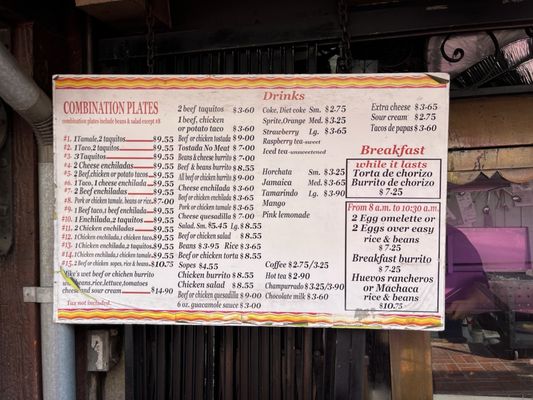 COMBINATION PLATES
combination plates include beans & salad except #8
#1. 1 Tamale, 2 taquitos $9.55
#2. 1 Taco, 2 taquitos $9.55
#3. 3 Taquitos $9.55
#4. 2 Cheese enchiladas $9.55
#5. 2 Beef, chicken or potato tacos $9.55
#6. 1 Taco, 1 cheese enchilada $9.55
#7. 2 Beef enchiladas $9.55
#8. Pork or chicken tamale, beans or rice $7.00
#9. 1 Beef taco, 1 beef enchilada $9.55
#10. 1 Enchilada, 2 taquitos $9.55
#11. 2 Chicken enchiladas $9.55
#12. 1 Chicken enchilada, 1 chicken taco $9.55
#13. 1 Chicken enchilada, 2 taquitos $9.55
#14. 1 Chicken enchilada, 1 chicken tamale $9.55
#15. 2 Beef or chicken sopes, rice & beans $10.75
Mike's wet beef or chicken burrito
beans, rice, lettuce, tomatoes
cheese and sour cream $14.90
Tax not included.
2 beef taquitos $3.60
1 beef, chicken
or potato taco $3.60
Beef or chicken tostada $9.00
Tostada No Meat $7.00
Beans & cheese burrito $7.00
Beef & beans burrito $8.55
All beef or chicken burrito $9.00
Cheese enchilada $3.60
Beef or chicken enchilada $3.65
Pork or chicken tamale $3.65
Cheese quesadilla $7.00
Salad. Sm. $5.45 Lg. $8.55
Beef or chicken salad $8.55
Beans $3.95 Rice $3.65
Beef or chicken torta $8.55
Sopes $4.55
Chicken burrito $8.55
Chicken salad $8.55
Beef or chicken quesadilla $9.00
6 oz. guacamole sauce $3.00
Drinks
Coke, Diet coke Sm. $2.75
Sprite, Orange Med. $3.25
Strawberry Lg. $3.65
Raspberry tea-sweet
Iced tea-unsweetened
Horchata Sm. $3.25
Jamaica Med. $3.65
Tamarindo Lg. $3.90
Mango
Pink lemonade
Coffee $2.75/3.25
Hot tea $2.90
Champurrado $3.25/3.90
Chocolate milk $3.60
Extra cheese $3.65
Sour cream $2.75
Tacos de papas $3.65
Breakfast
while it lasts
Torta de chorizo
Burrito de chorizo
$7.25
From 8 a.m. to 10:30 a.m.
2 Egg omelette or
2 Eggs over easy
rice & beans
$7.25
Breakfast burrito
$7.25
Huevos rancheros
or Machaca
rice & beans
$10.75